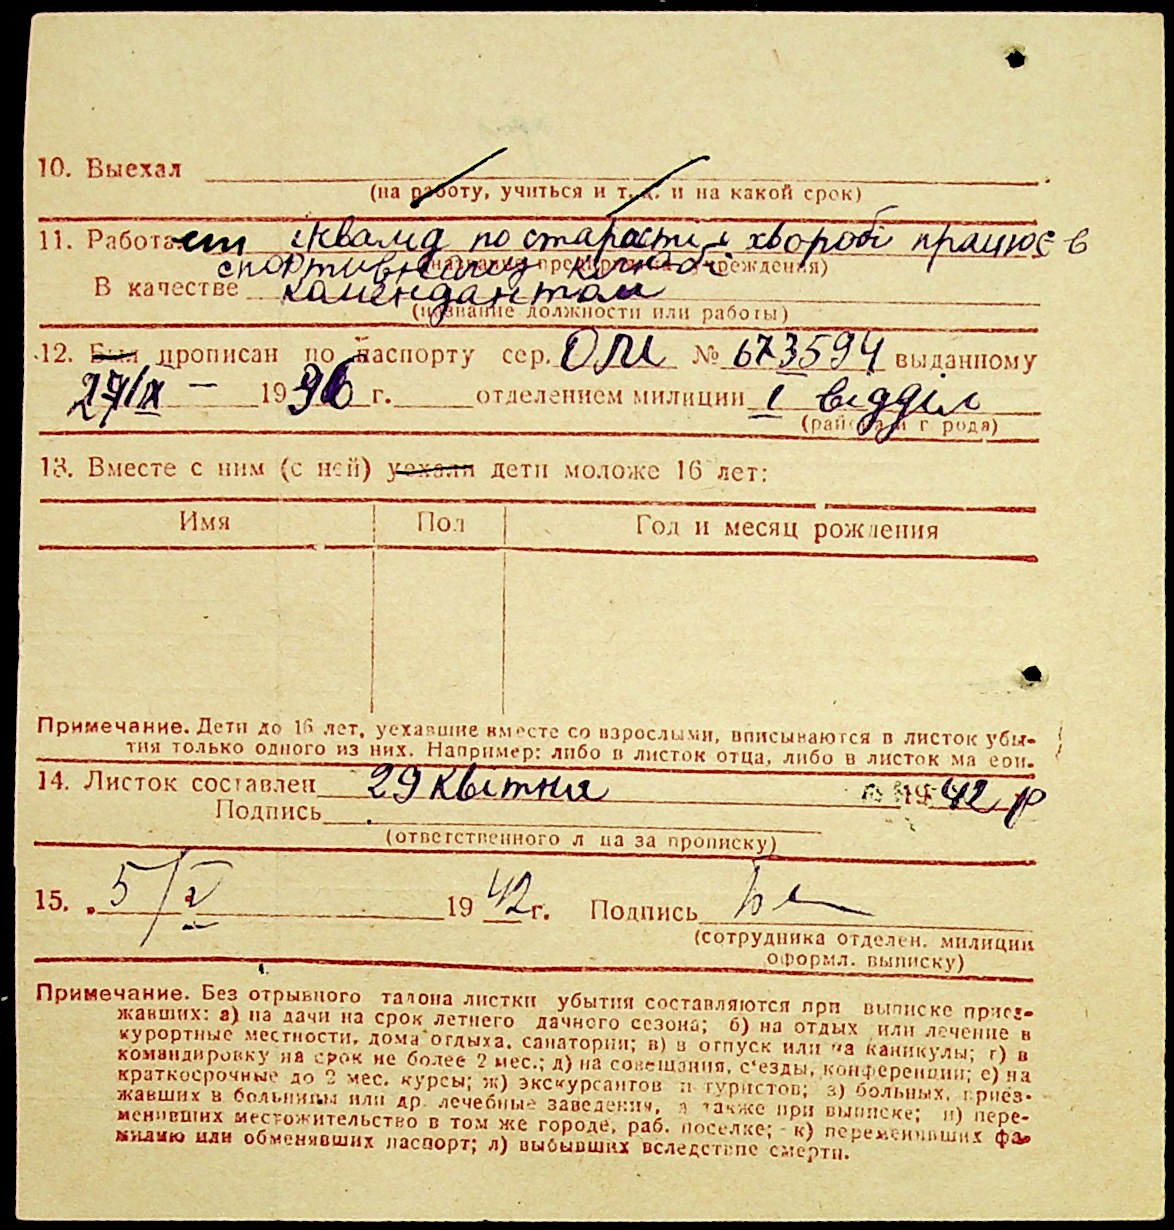 10. Выехал
(на работу, учиться и т. д. и на какой срок)
11. Работает інвалід по старості і хворобі працює в
спортивному клюбі
В качестве комендантом
(название должности или работы)
12. Был прописан по паспорту сер. ОЛШ № 673594 выданному
27/IX – 1936 г. отделением милиции I відділ
(района и города)
13. Вместе с ним (с ней) уехали дети моложе 16 лет:
Имя Пол Год и месяц рождения
Примечание. Дети до 16 лет, уехавшие вместе со взрослыми, вписываются в листок убы-
тия только одного из них. Например: либо в листок отца, либо в листок матери.
14. Листок составлен 29 квітня 1942 р
Подпись
(ответственного лица за прописку)
15. 5/V 1942 г. Подпись
(сотрудника отделен. милиции
оформл. выписку)
Примечание. Без отрывного талона листки убытия составляются при выписке приез-
жавших: а) на дачи на срок летнего дачного сезона; б) на отдых или лечение в
курортные местности, дома отдыха, санатории; в) в отпуск или на каникулы; г) в
командировку на срок не более 2 мес.; д) на совещания, с'езды, конференции; е) на
краткосрочные до 2 мес. курсы; ж) экскурсантов и туристов; з) больных, приез-
жавших в больницы или др. лечебные заведения, а также при выписке; и) пере-
менивших местожительство в том же городе, раб. поселке; к) переменивших фа-
милию или обменявших паспорт; л) выбывших вследствие смерти.